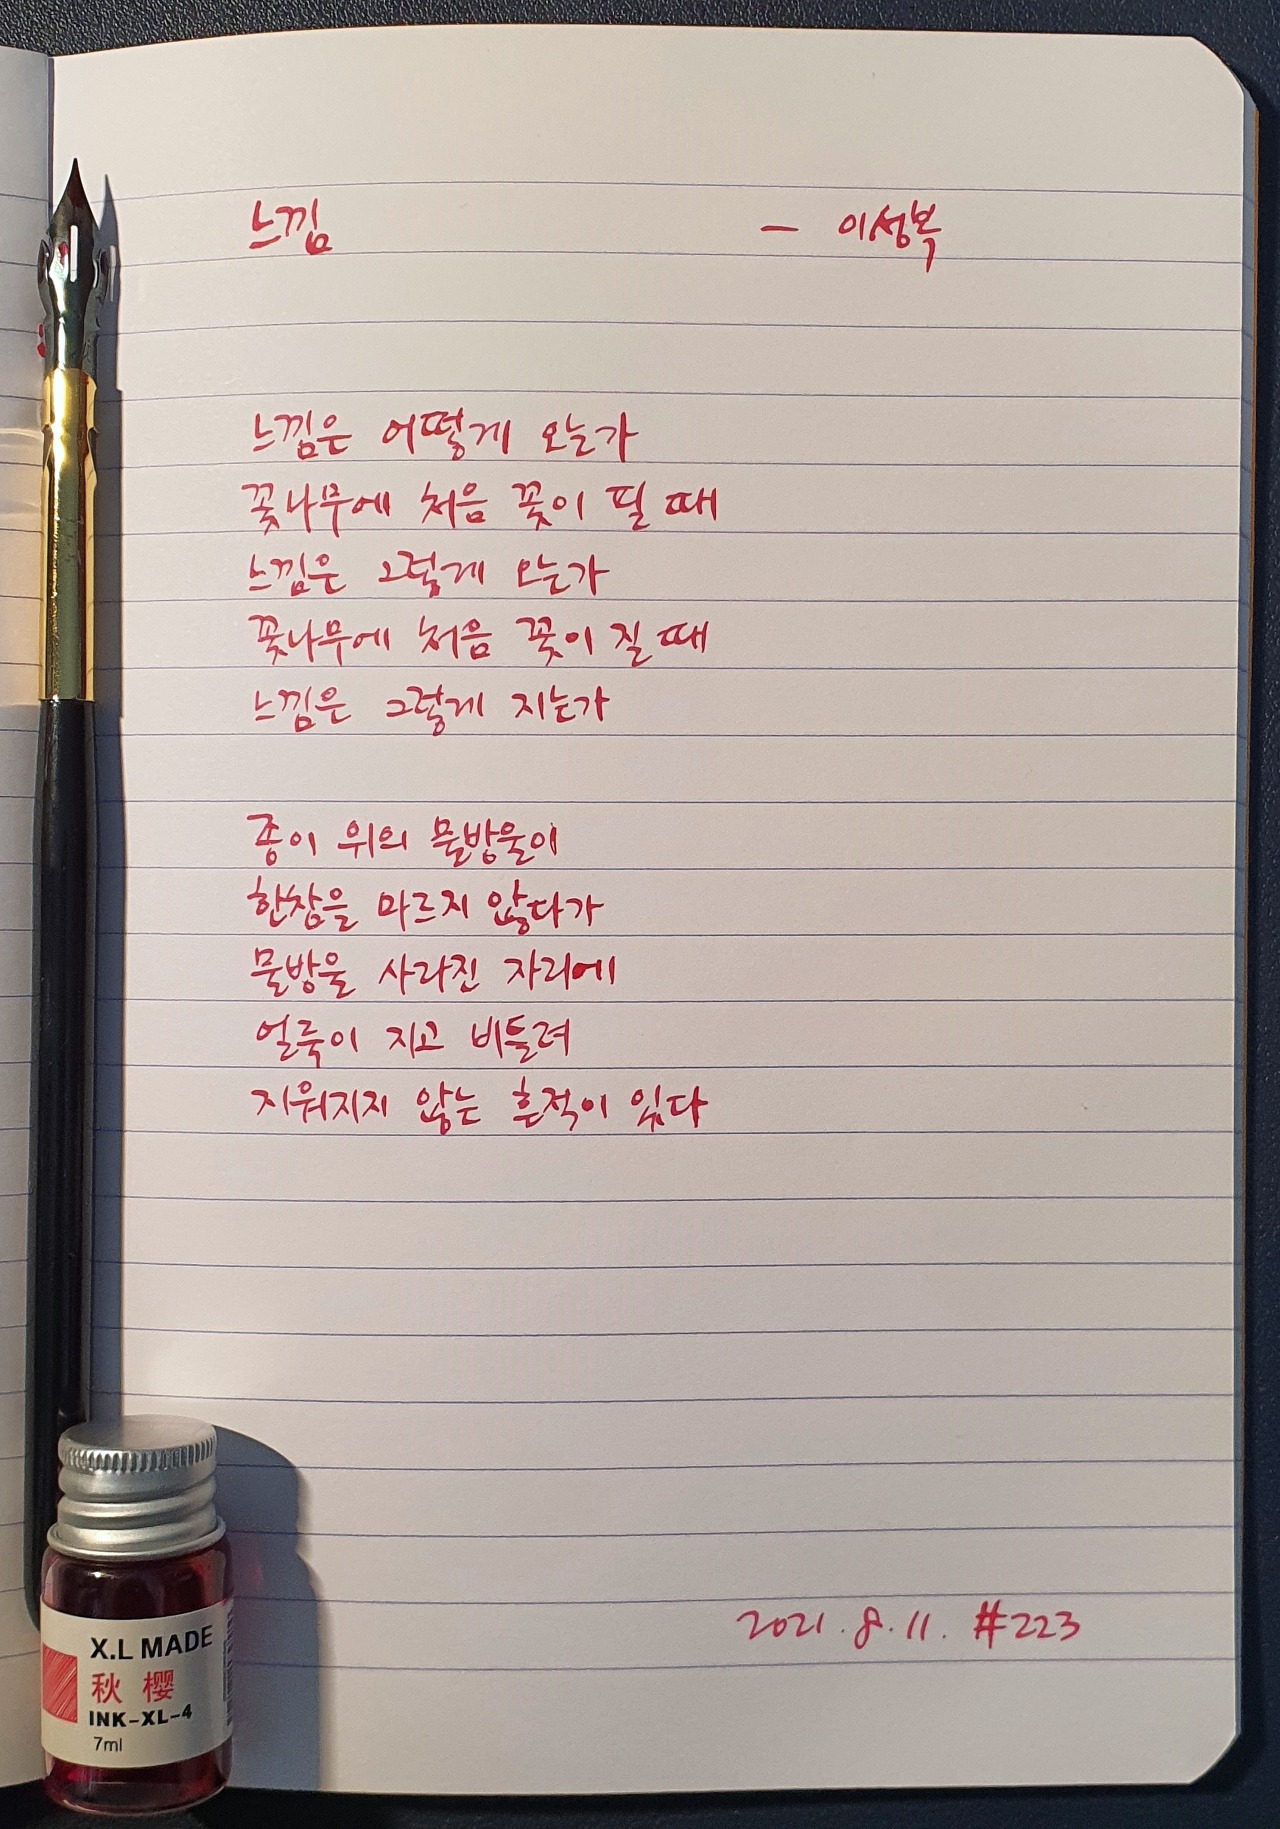 느낌 — 이성복
느낌은 어떻게 오는가
꽃나무에 처음 꽃이 필 때
느낌은 그렇게 오는가
꽃나무에 처음 꽃이 질 때
느낌은 그렇게 지는가
종이 위의 물방울이
한참을 마르지 않다가
물방울 사라진 자리에
얼룩이 지고 비틀려
지워지지 않는 흔적이 있다
2021. 8. 11. #223
X.L MADE
秋樱
INK-XL-4
7ml